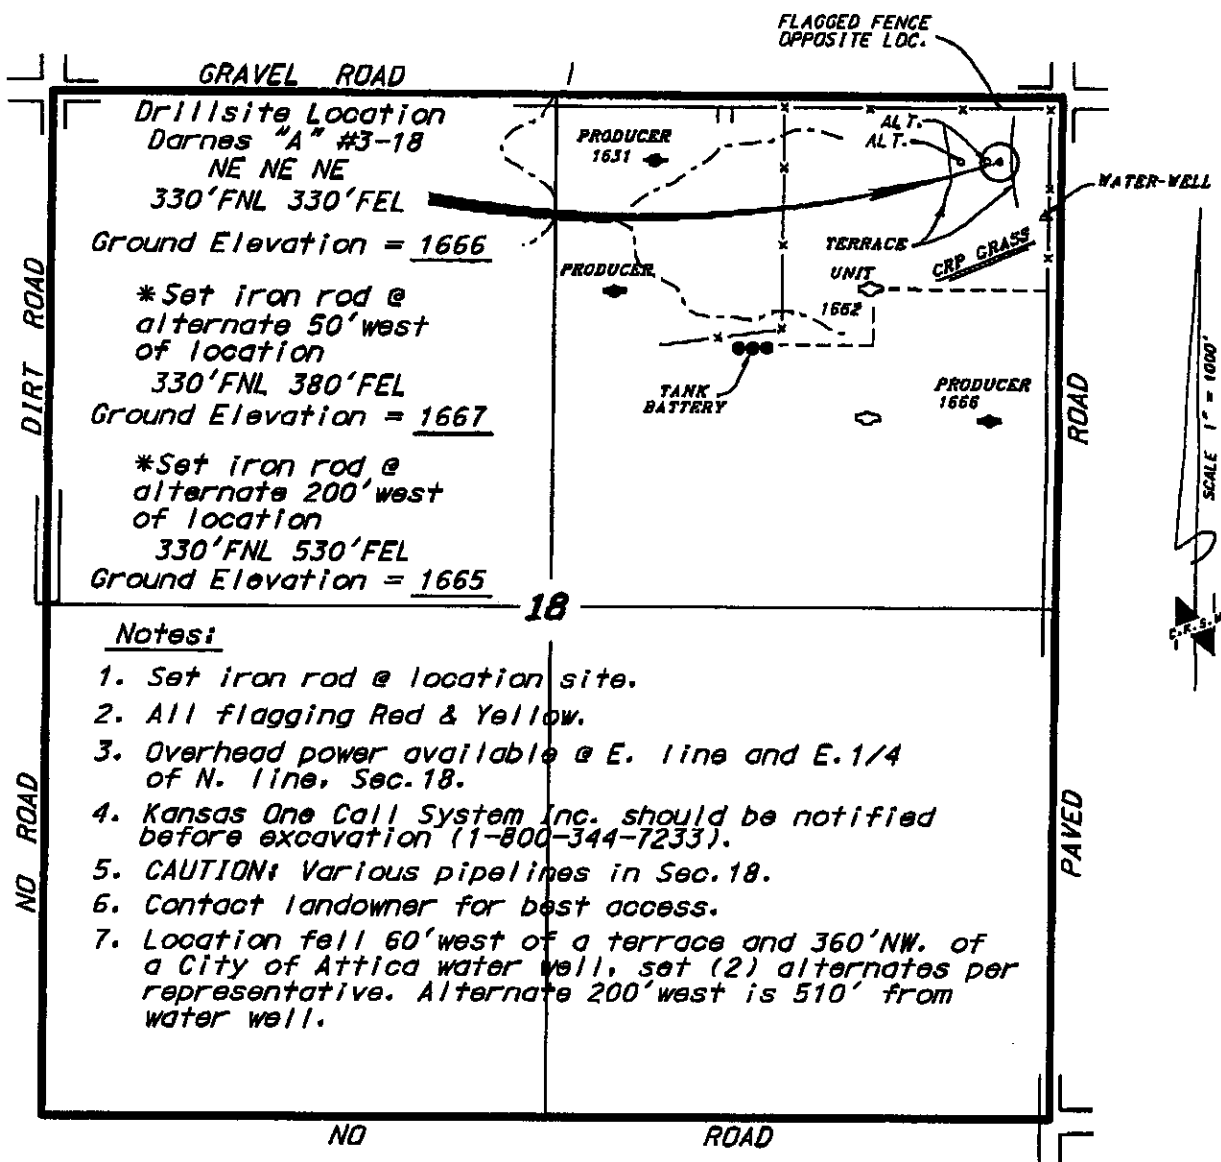 FLAGGED FENCE
OPPOSITE LOC.
GRAVEL ROAD
Drillsite Location
Darnes "A" #3-18
NE NE NE
330'FNL 330'FEL
Ground Elevation = 1666
*Set iron rod @
alternate 50'west
of location
330'FNL 380'FEL
Ground Elevation = 1667
*Set iron rod @
alternate 200'west
of location
330'FNL 530'FEL
Ground Elevation = 1665
PRODUCER
1631
ALT.
ALT.
WATER-WELL
TERRACE
CRP GRASS
PRODUCER
UNIT
1662
TANK
BATTERY
PRODUCER
1666
DIRT ROAD
ROAD
SCALE 1" = 1000'
18
Notes:
1. Set iron rod @ location site.
2. All flagging Red & Yellow.
3. Overhead power available @ E. line and E.1/4
of N. line, Sec.18.
4. Kansas One Call System Inc. should be notified
before excavation (1-800-344-7233).
5. CAUTION: Various pipelines in Sec.18.
6. Contact landowner for best access.
7. Location fell 60'west of a terrace and 360'NW. of
a City of Attica water well, set (2) alternates per
representative. Alternate 200'west is 510' from
water well.
NO ROAD
PAVED
NO ROAD